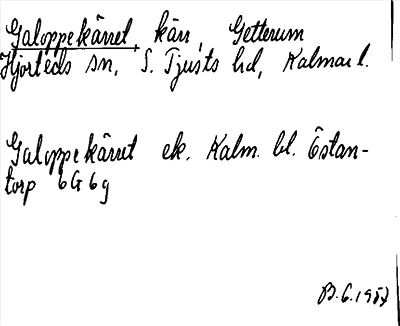 Galoppekärret, kärr, Getterum
Hjorteds sn, S. Tjusts hd, Kalmar l.
Galoppekärret ek. Kalm. bl. Östan-
torp 6G6g
B.G.1957